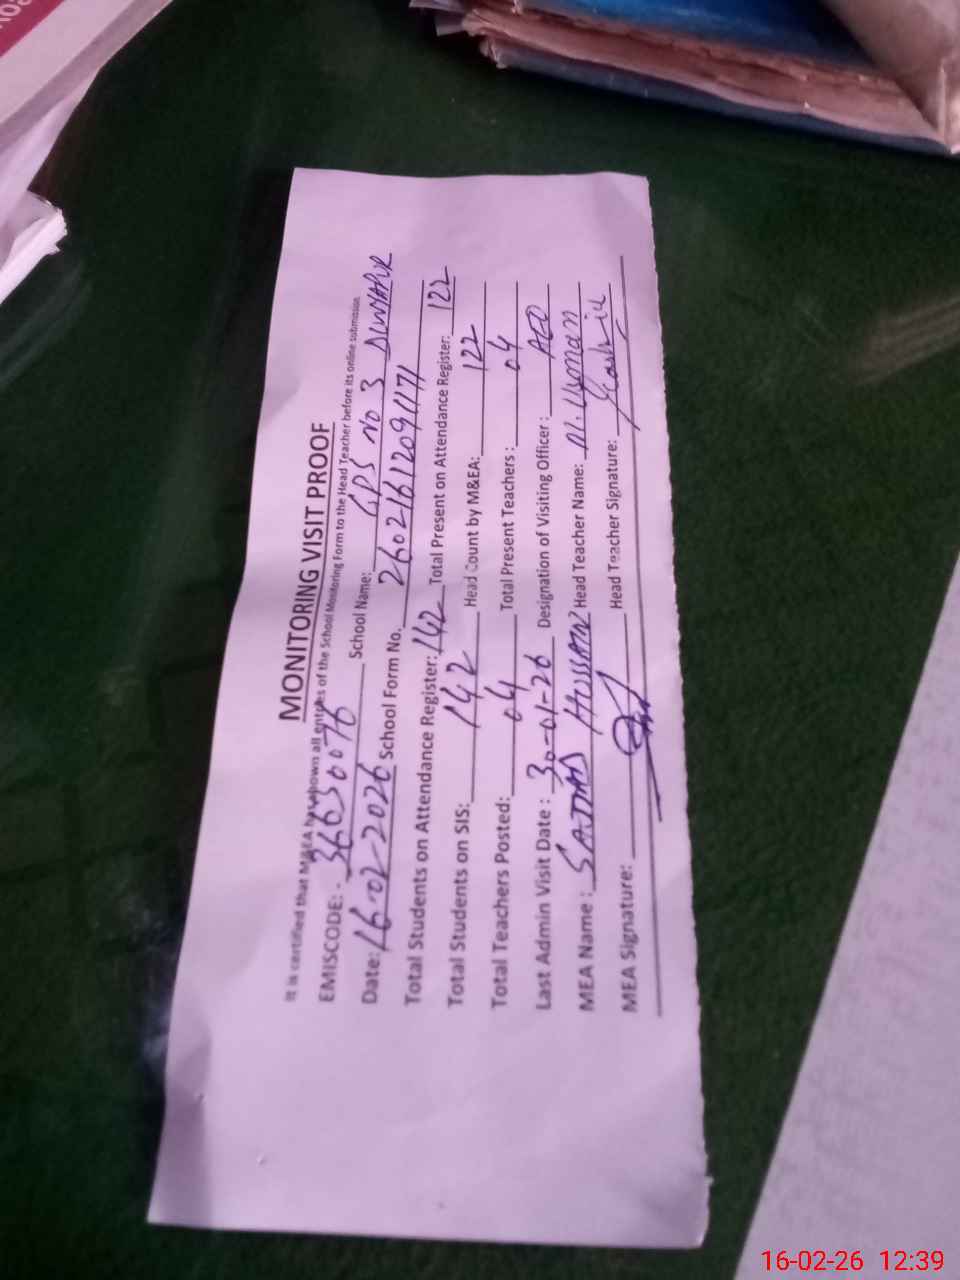 MONITORING VISIT PROOF
It is certified that M&EA has shown all entries of the School Monitoring Form to the Head Teacher before its online submission
EMISCODE: - 36630076 School Name: GPS No 3
Date: 16-02-2026 School Form No. 26021612091171
Total Students on Attendance Register: 142 Total Present on Attendance Register: 122
Total Students on SIS: 142 Head Count by M&EA: 122
Total Teachers Posted: 04 Total Present Teachers: 04
Last Admin Visit Date: 30-01-26 Designation of Visiting Officer: AEO
MEA Name: SAJJAD HUSSAIN Head Teacher Name: M. Usman
MEA Signature: Head Teacher Signature:
16-02-26 12:39